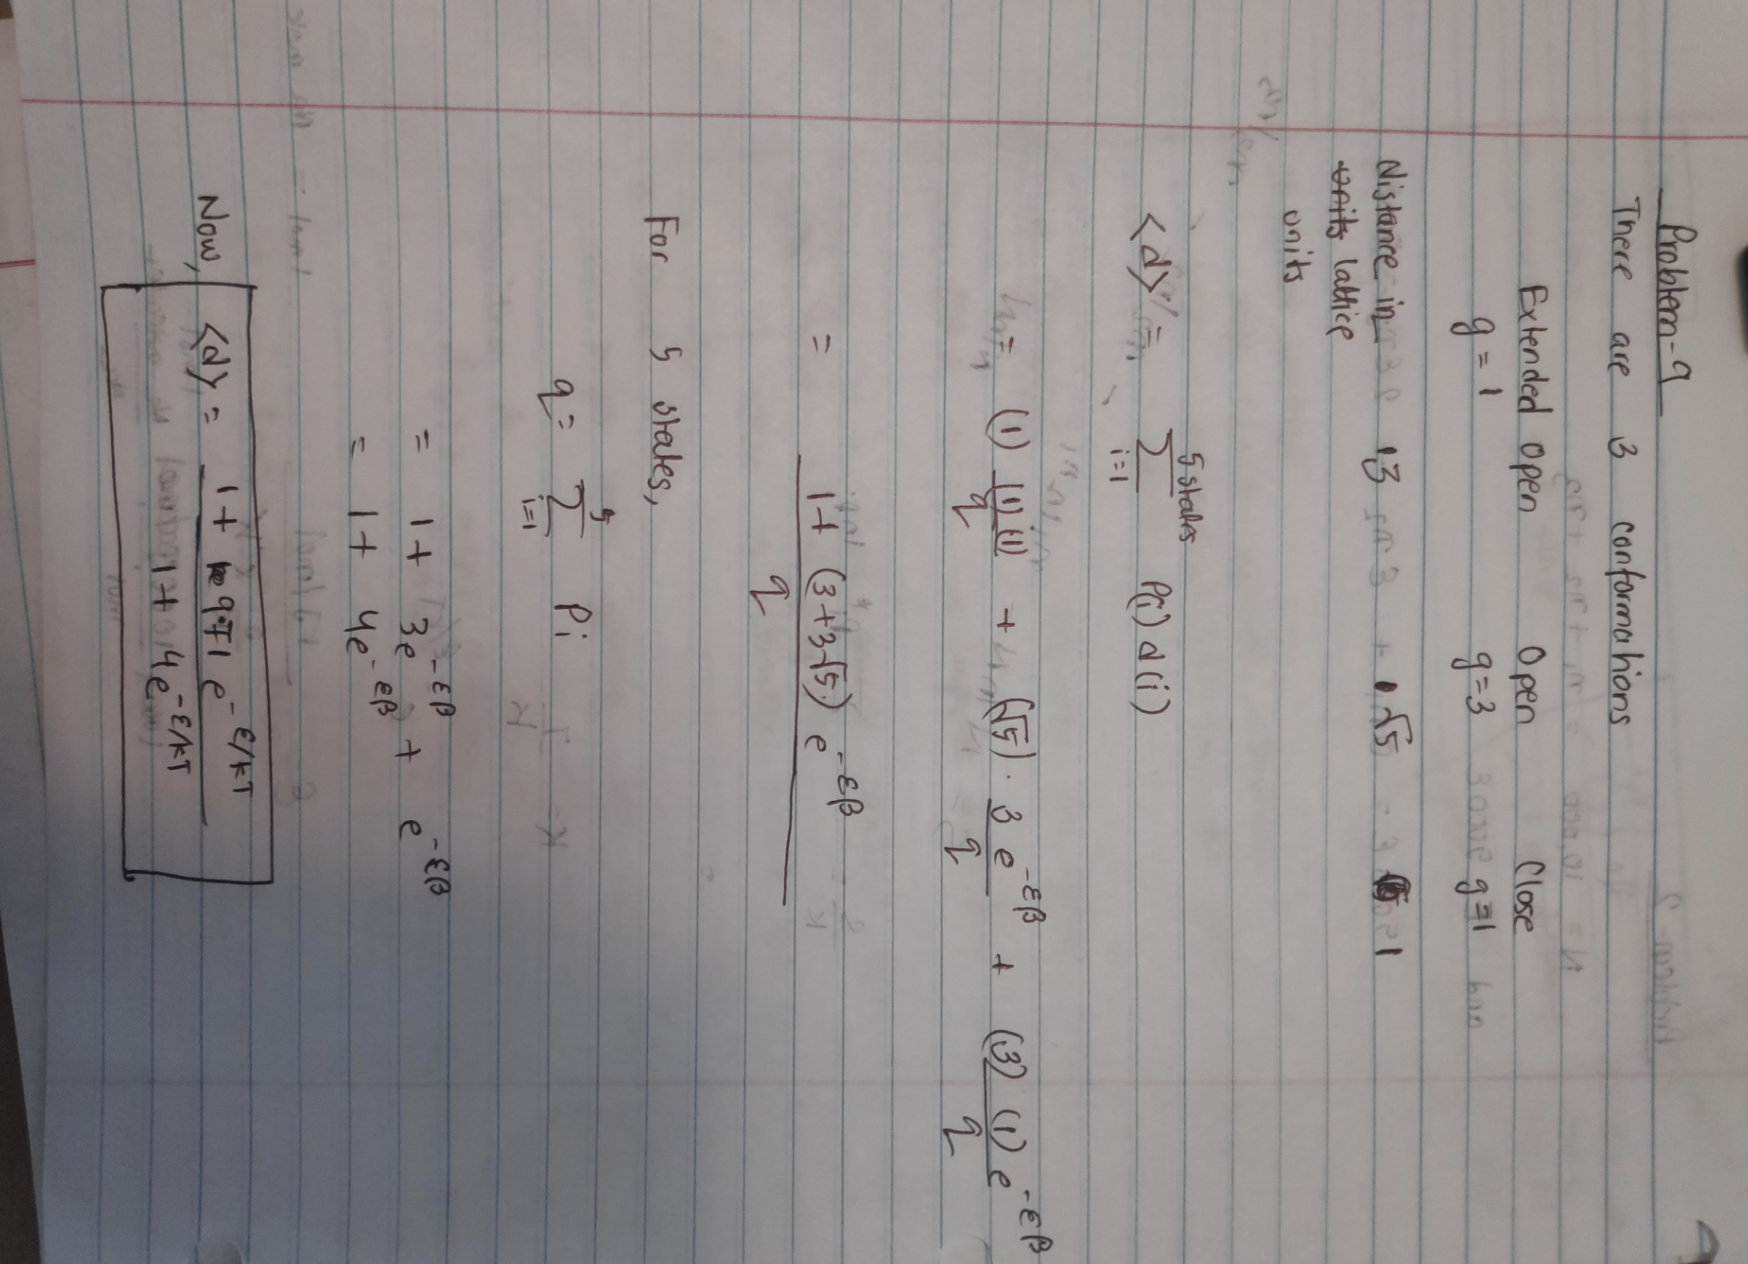 Problem-9
There are 3 conformations
Extended open Open Close
g = 1 g=3 g=1
Distance in 3 √5 1
lattice
units
<d> = ∑ 5 states i=1 P(i) d(i)
= (1) (1)(1)/q + (√5) · 3 e^-εβ/q + (3) (1) e^-εβ/q
= 1+ (3+3√5) e^-εβ / q
For 5 states,
q = ∑ 5 i=1 Pi
= 1 + 3e^-εβ + e^-εβ
= 1 + 4e^-εβ
Now, <d> = 1 + 9.71 e^-ε/kT / 1 + 4e^-ε/kT